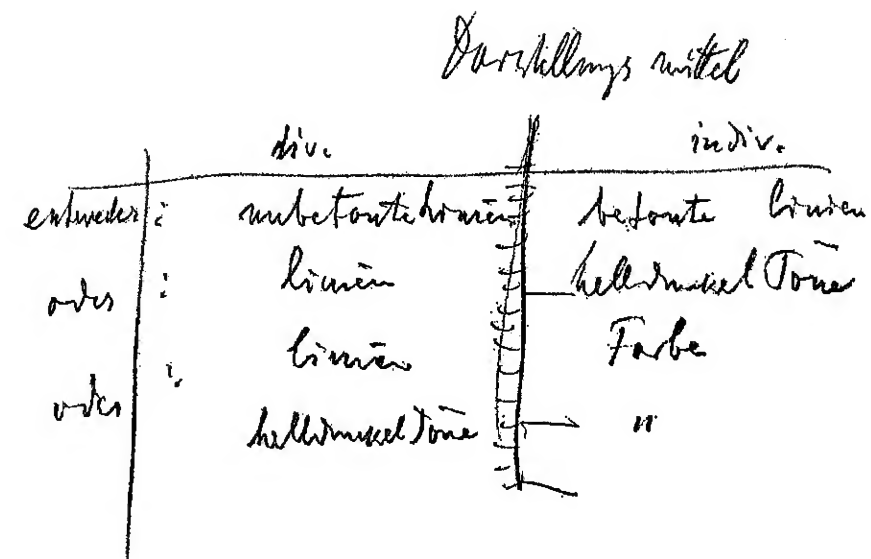 Darstellungsmittel
div. indiv.
entweder : unbetonte Linien betonte Linien
oder : Linien helldunkel Töne
Linien Farbe
oder :
helldunkel Töne "